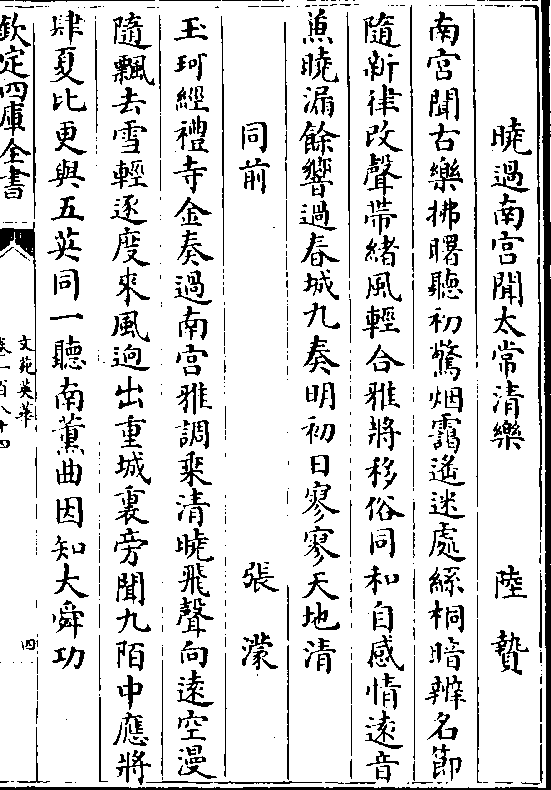 曉過南宮聞太常清樂　陸贄
南宮聞古樂拂曙聽初驚烟靄遙迷處絲桐暗辨名節
隨新律改聲帶緒風輕合雅將移俗同和自感情遠音
兼曉漏餘響過春城九奏明初日寥寥天地清
同前　張濛
玉珂經禮寺金奏過南宮雅調乘清曉飛聲向遠空漫
隨飄去雪輕逐度來風迥出重城裏旁聞九陌中應將
肆夏比更與五英同一聽南薰曲因知大舜功
欽定四庫全書
文苑英華
卷一百八十四
四